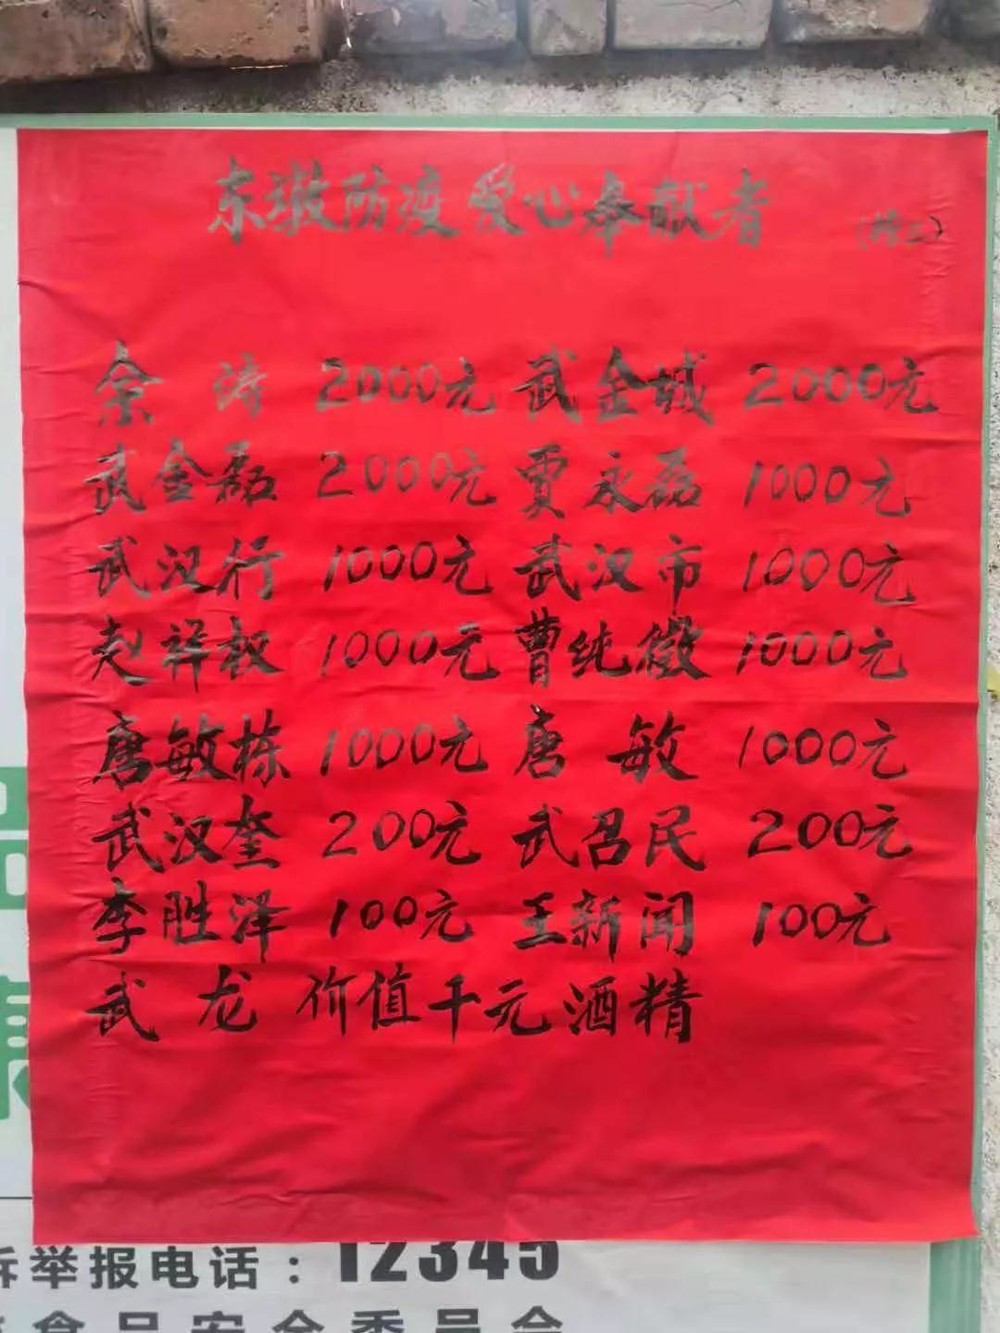 东墩防疫爱心奉献者 (榜二)
余涛 2000元 武金城 2000元
武金磊 2000元 贾永磊 1000元
武汉行 1000元 武汉市 1000元
赵祥权 1000元 曹纯徽 1000元
唐敏栋 1000元 唐敏 1000元
武汉奎 200元 武召民 200元
李胜泽 100元 王新闻 100元
武龙 价值千元酒精
诉举报电话：12345
食品安全委员会